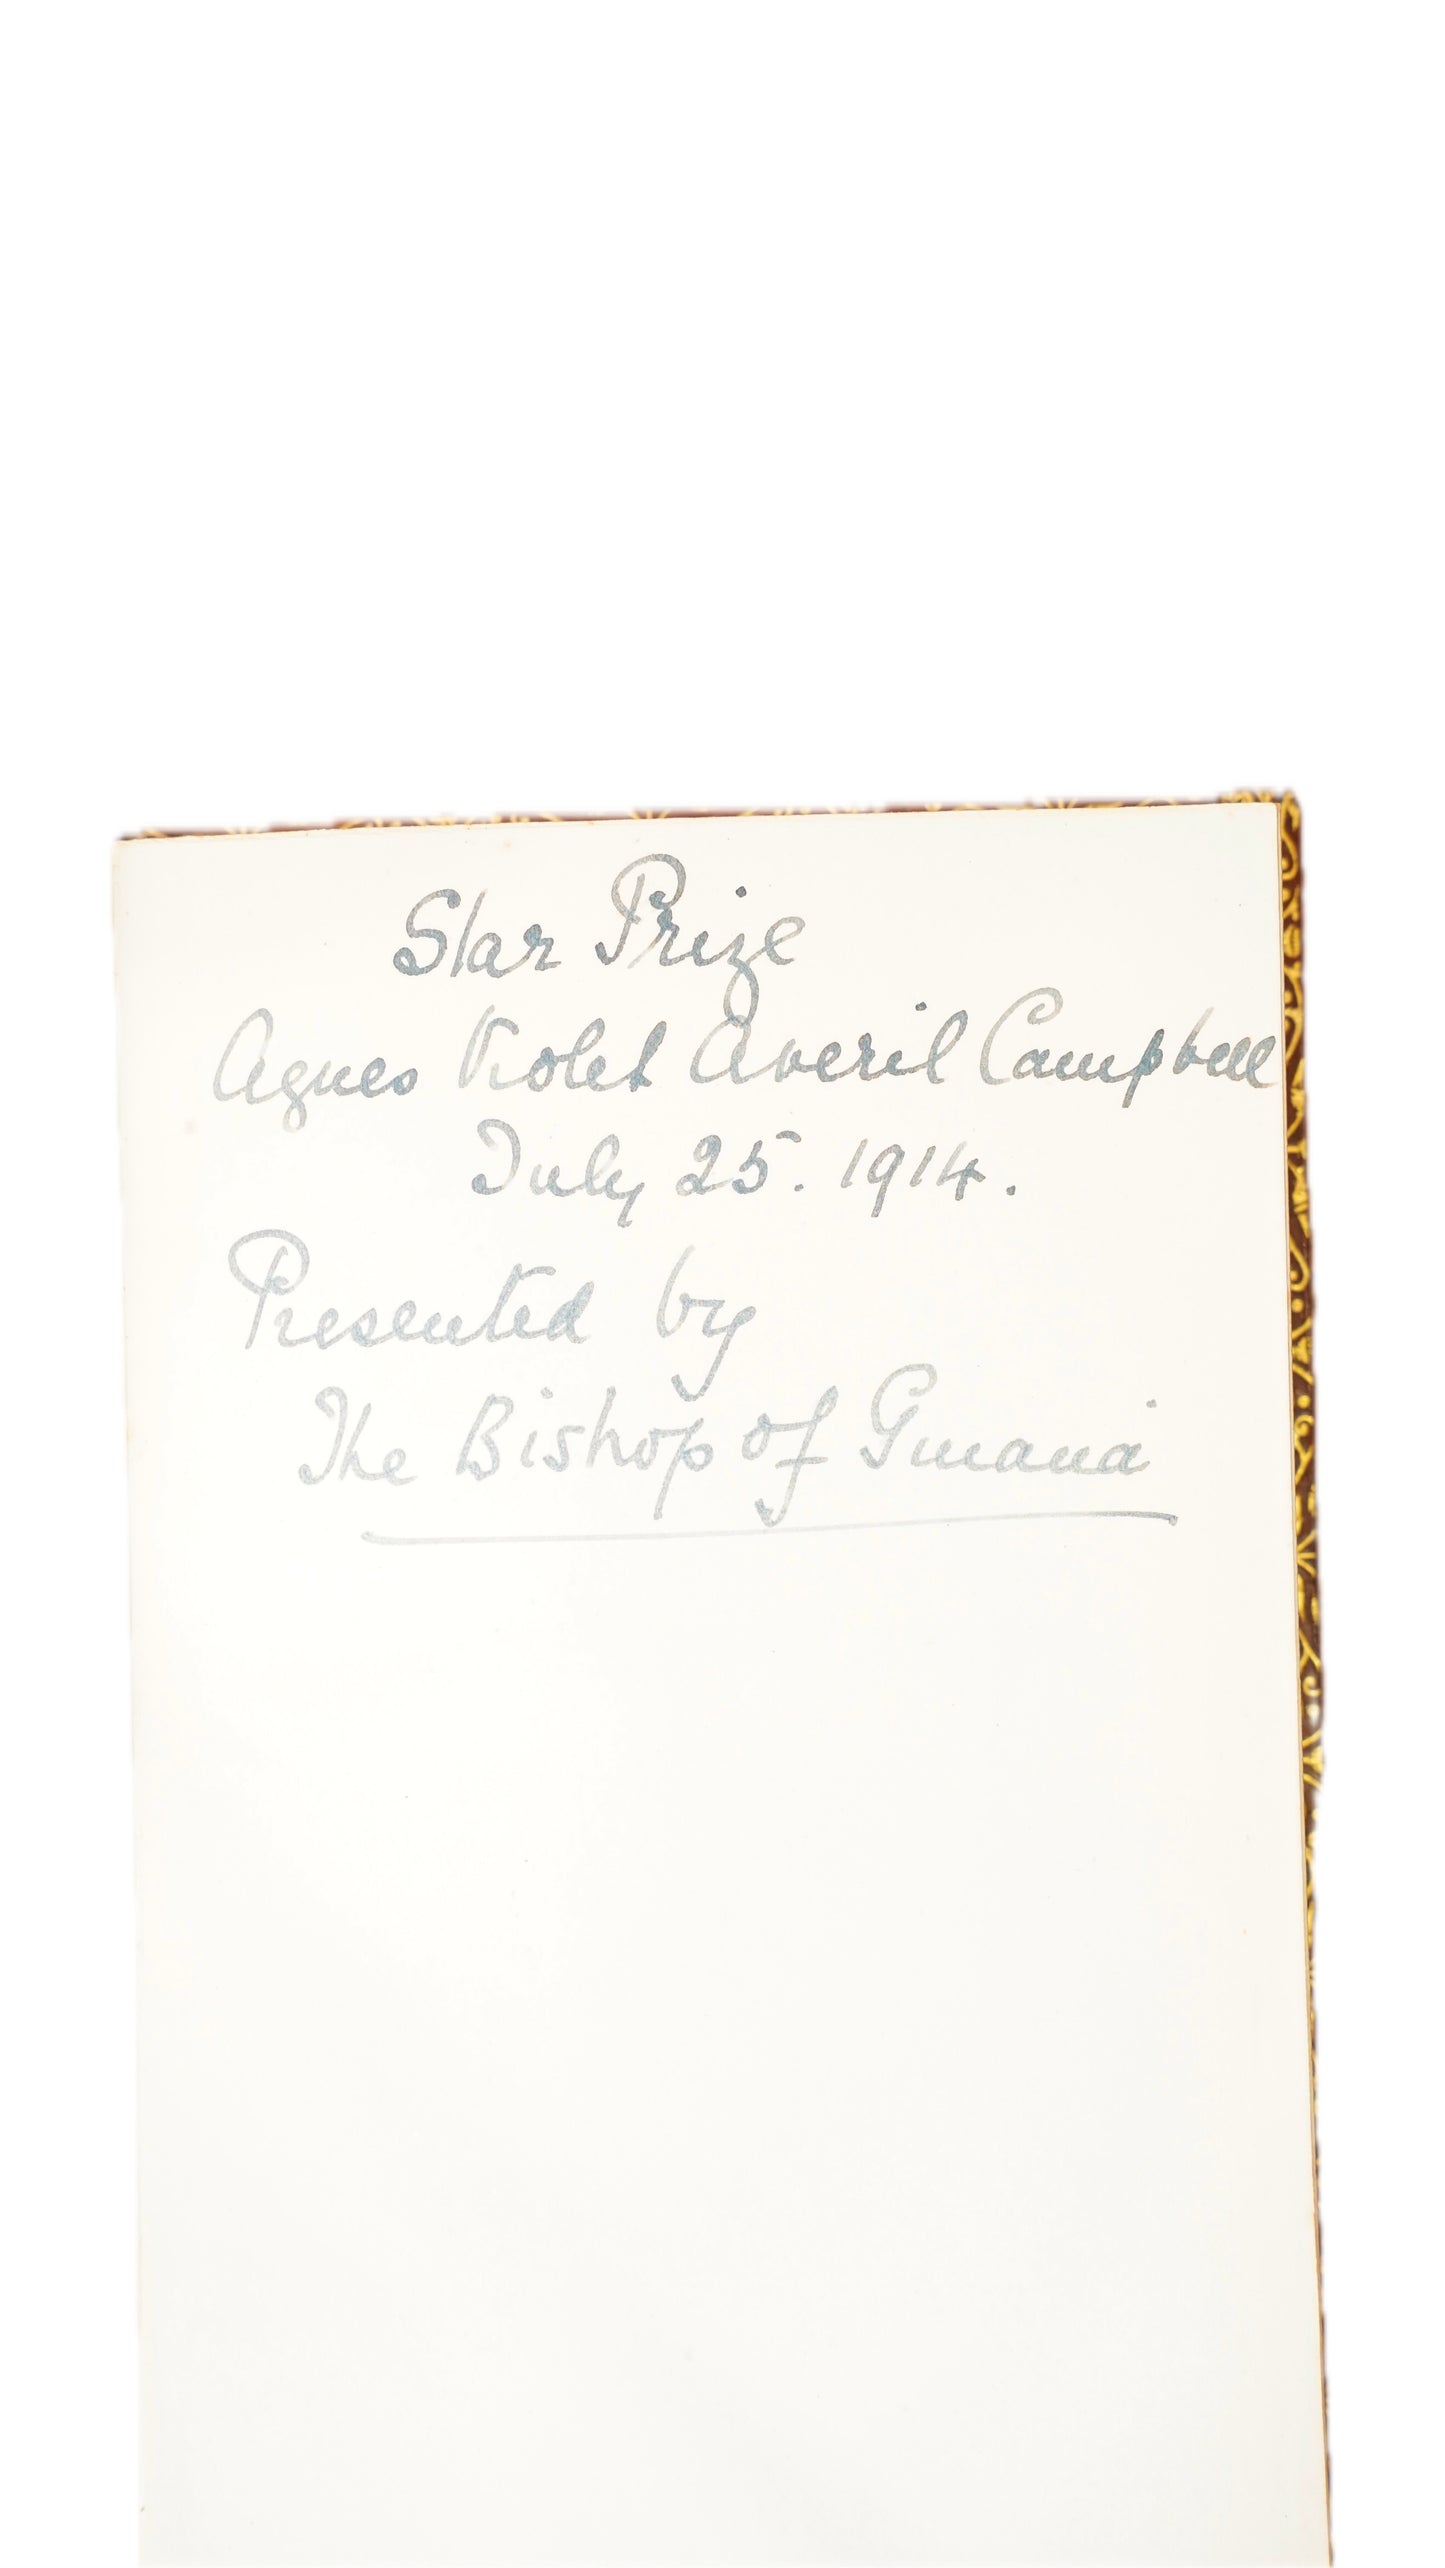 Star Prize
Agnes Violet Averil Campbell
July 25. 1914.
Presented by
The Bishop of Guiana